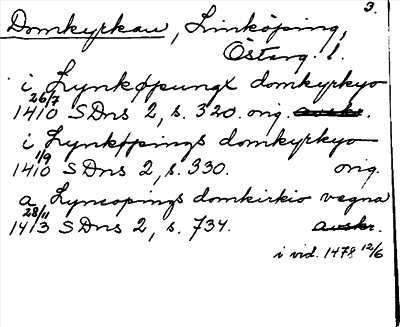 3.
Domkyrkan, Linköping,
Österg. l.
i Lynkøpungx domkyrkyo
26/7
1410 SDns 2, s. 320. orig. avskr.
i Lynkøpings domkyrkyo
1/9
1410 SDns 2, s. 330. orig.
a Lyncopings domkirkio vegna
28/11
1413 SDns 2, s. 734. avskr.
i vid. 1478 12/6